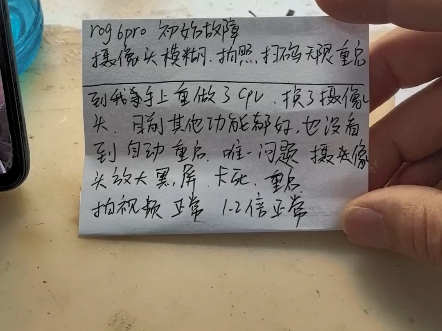 rog6pro 初始故障
摄像头模糊.拍照.扫码无限重启
到我手上重做了CPU.换了摄像
头.目前其他功能都好,也没看
到自动重启.唯一问题 摄像
头放大黑屏.卡死.重启
拍视频正常 1-2倍正常